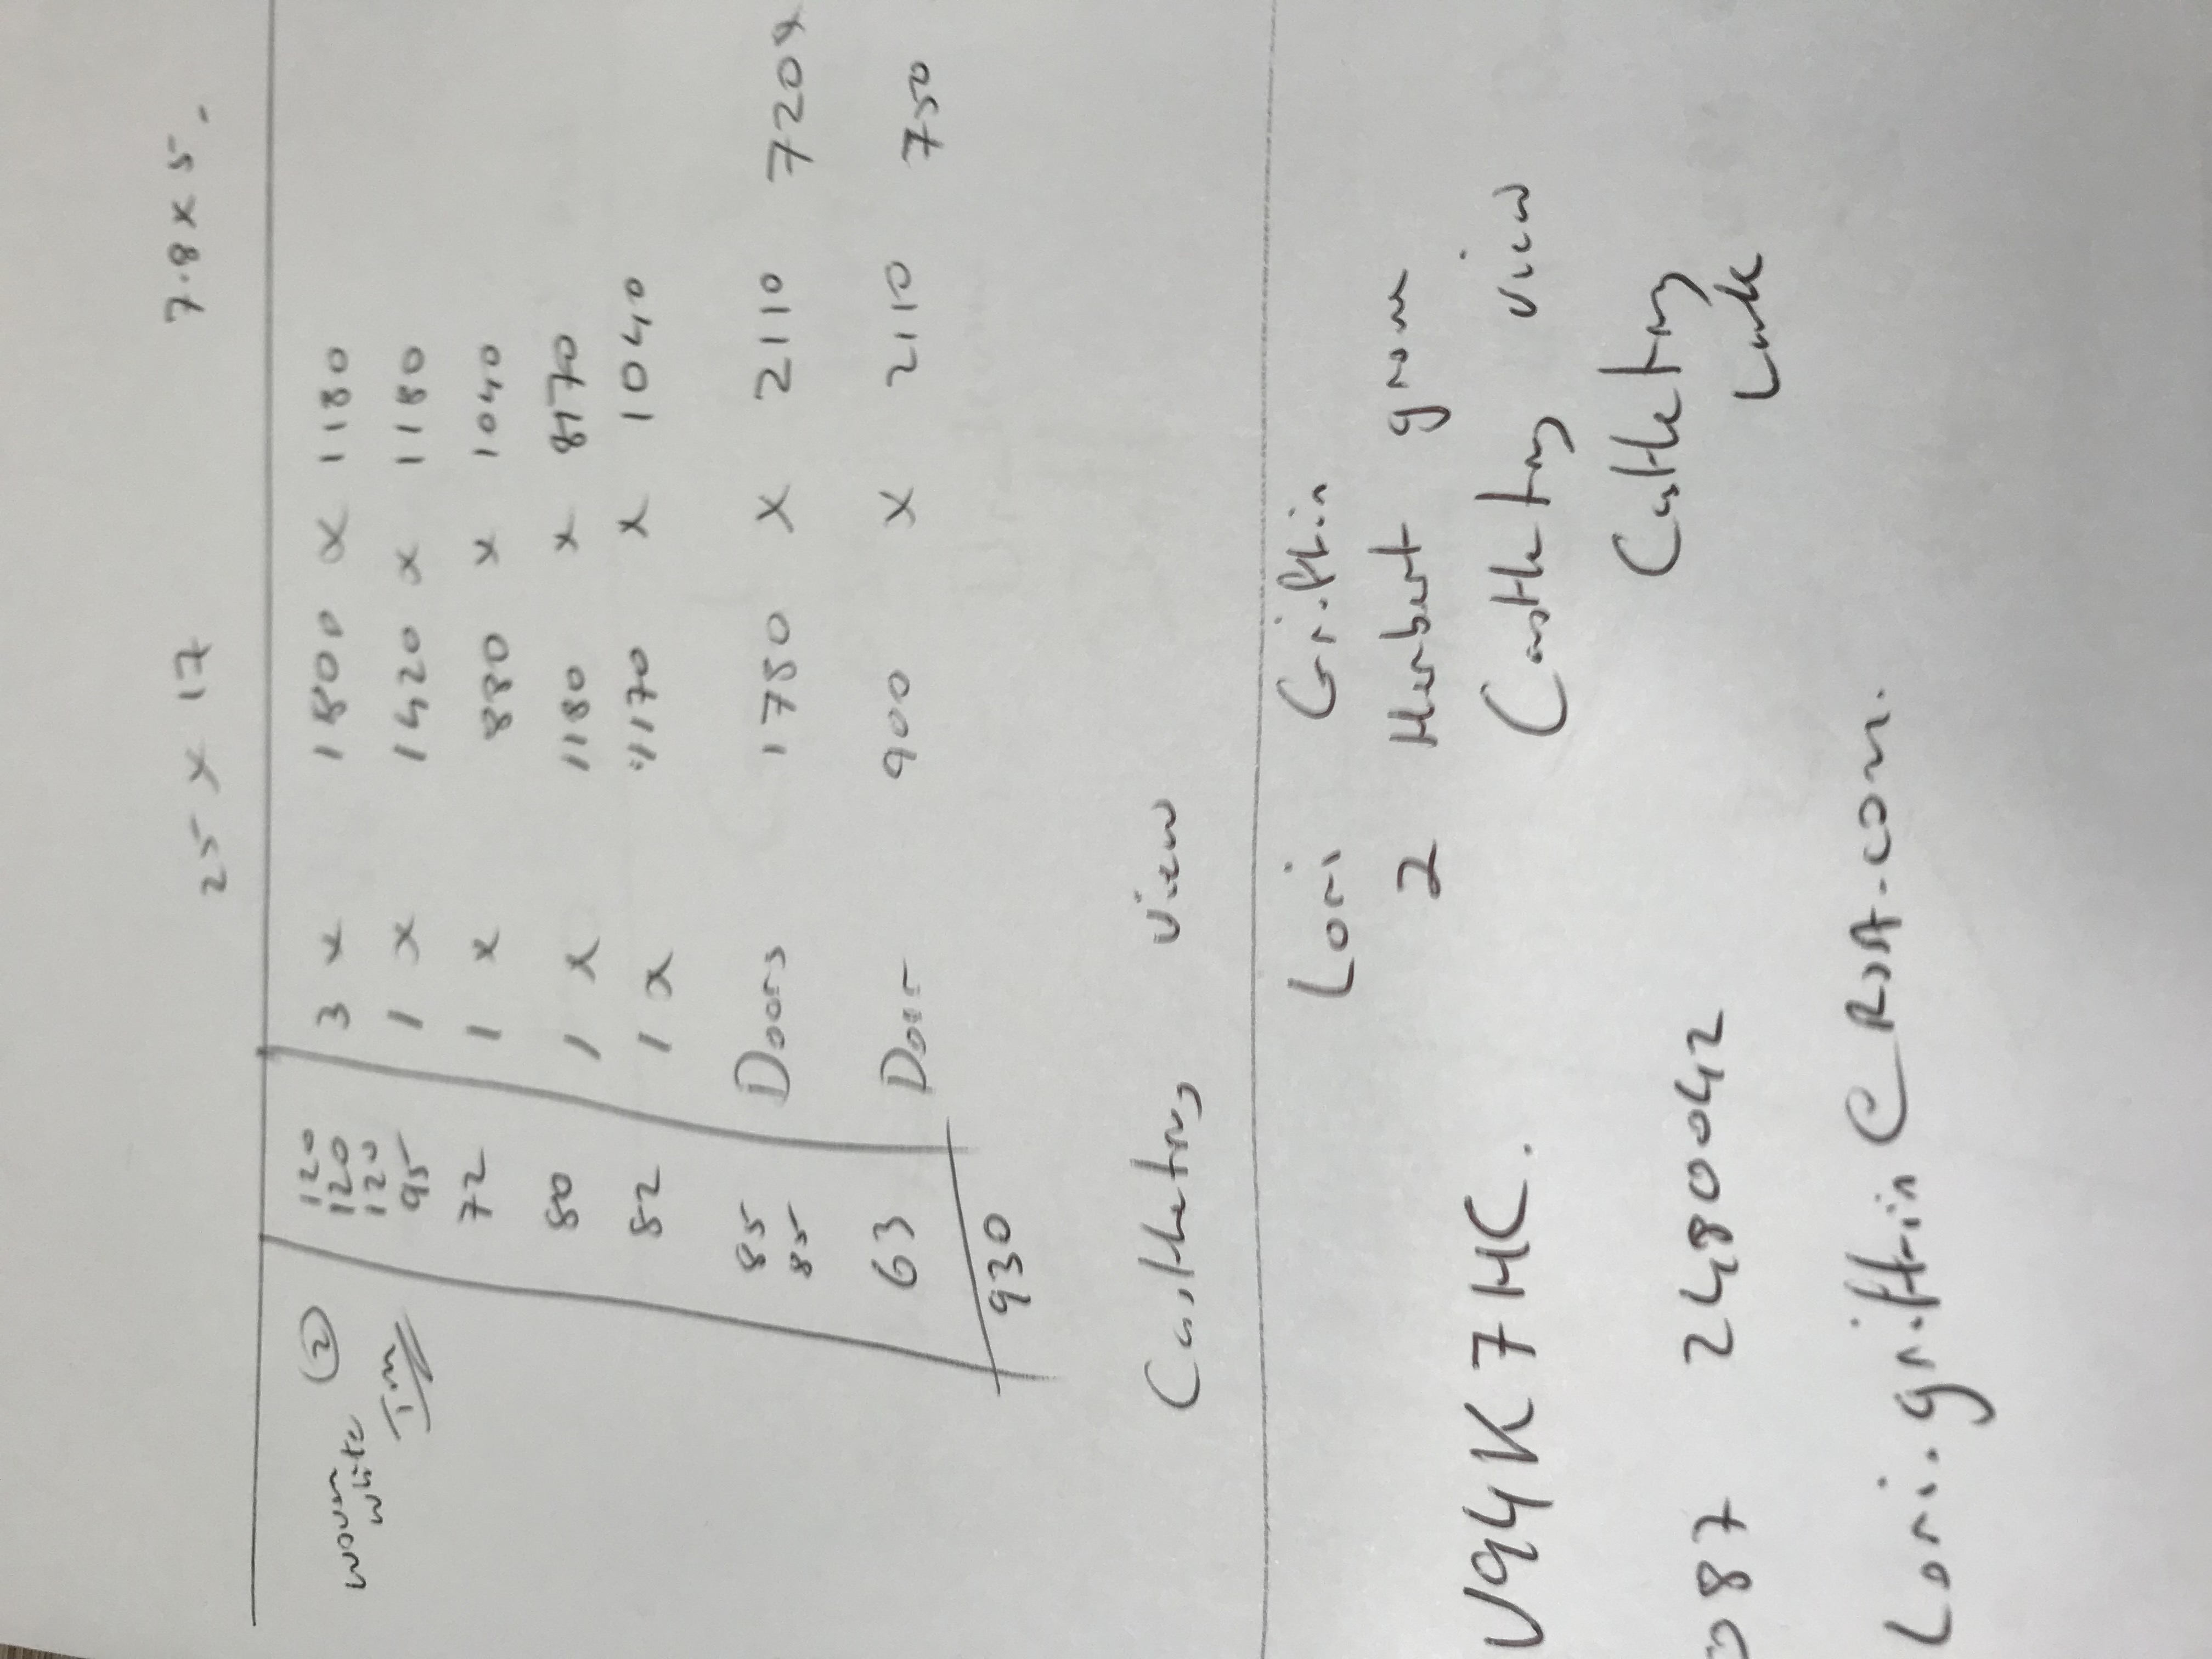 25 x 17 7.8 x 5.
woven ② 120 3 x 1800 x 1180
white 120
Jim 120
95 1 x 1420 x 1180
72 1 x 880 x 1040
80 1 x 1180 x 8170
82 1 x 1170 x 1040
85 Doors 1750 x 2110 720x
85
63 Door 900 x 2110 750
930
Castletroy view
Lori Griffin
2 Herbert grove
V94K7HC. Castletroy view
Castletroy
Lmk
087 2480042
Lori.griffin@RSA.com.